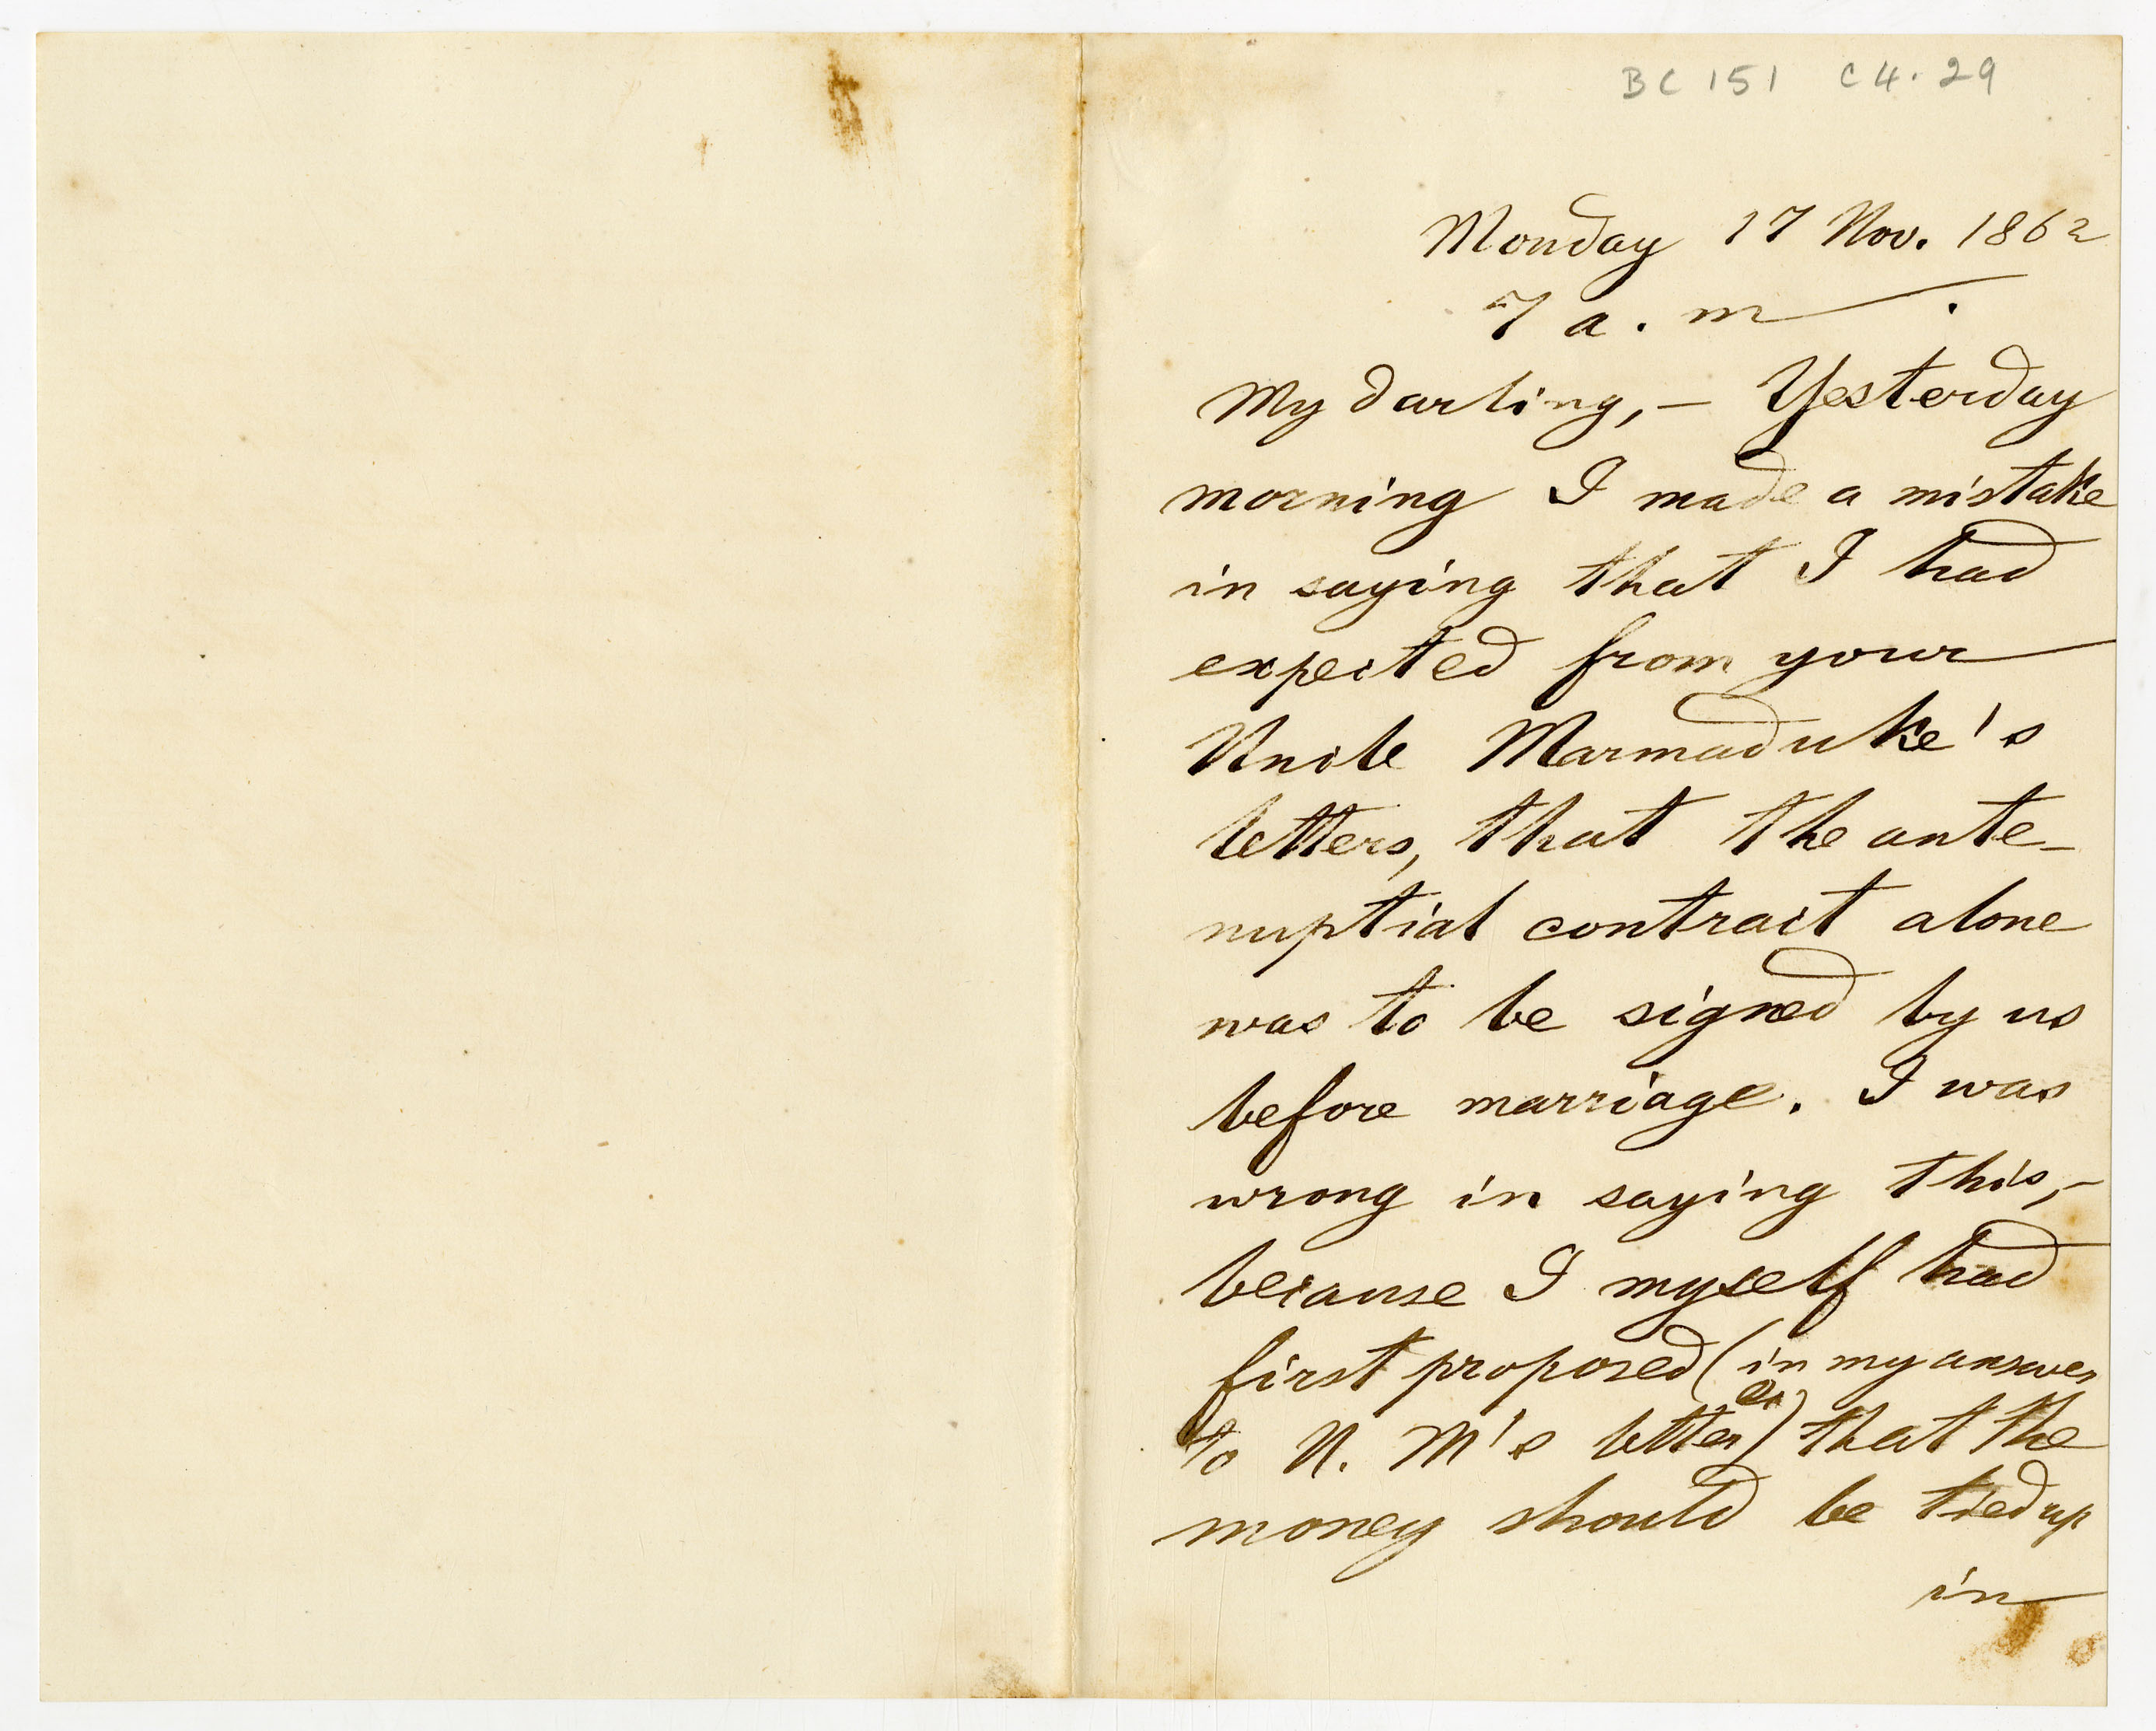 BC 151 C4.29
Monday 17 Nov. 1862
7 a.m.
My darling,— Yesterday
morning I made a mistake
in saying that I had
expected from your
Uncle Marmaduke's
letters, that the ante-
nuptial contract alone
was to be signed by us
before marriage. I was
wrong in saying this,—
because I myself had
first proposed (in my answer
to U. M's letter) that the
money should be tied up
in